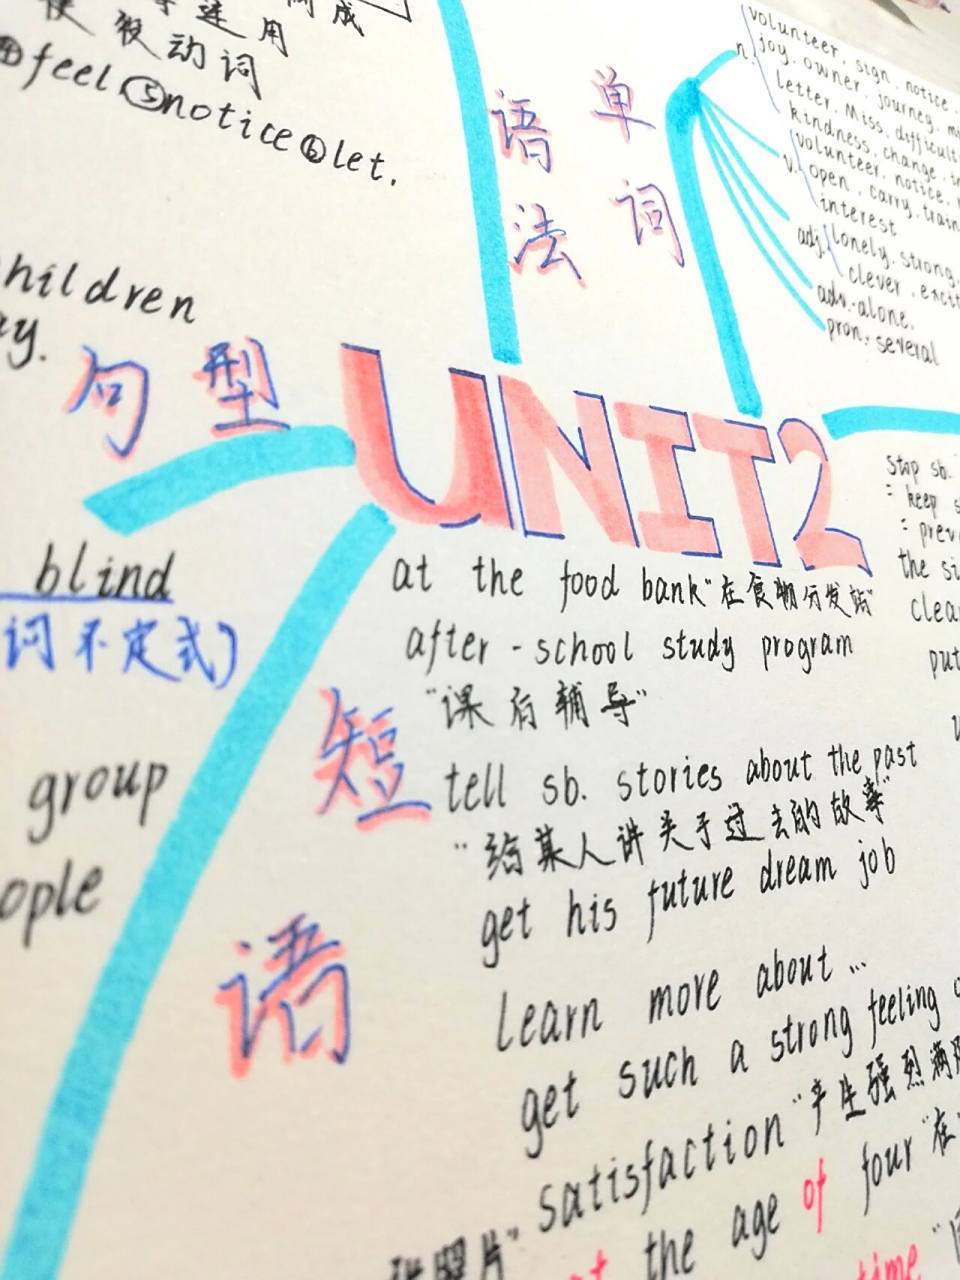 使役动词
feel ⑤notice⑥let.
语法
单词
n.
volunteer, sign, notice,
joy, owner, journey,
letter, Miss,
kindness, change,
v.
volunteer, notice,
open, carry, train
interest
adj.
lonely, strong,
clever,
adv.-alone.
pron.- several
句型
UNIT2
Stop sb.
= keep
the
blind
词不定式)
group
短语
at the food bank"在食物分发站"
after-school study program
"课后辅导"
tell sb. stories about the past
"给某人讲关于过去的故事"
get his future dream job
Learn more about...
get such a strong feeling
satisfaction"产生强烈满
the age of four"在
照片"
time
put